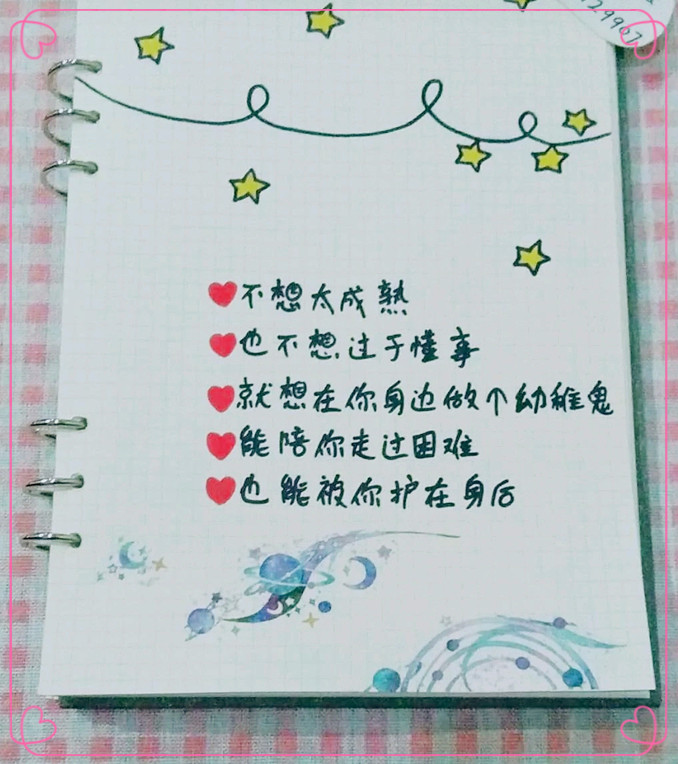 不想太成熟
也不想过于懂事
就想在你身边做个幼稚鬼
能陪你走过困难
也能被你护在身后